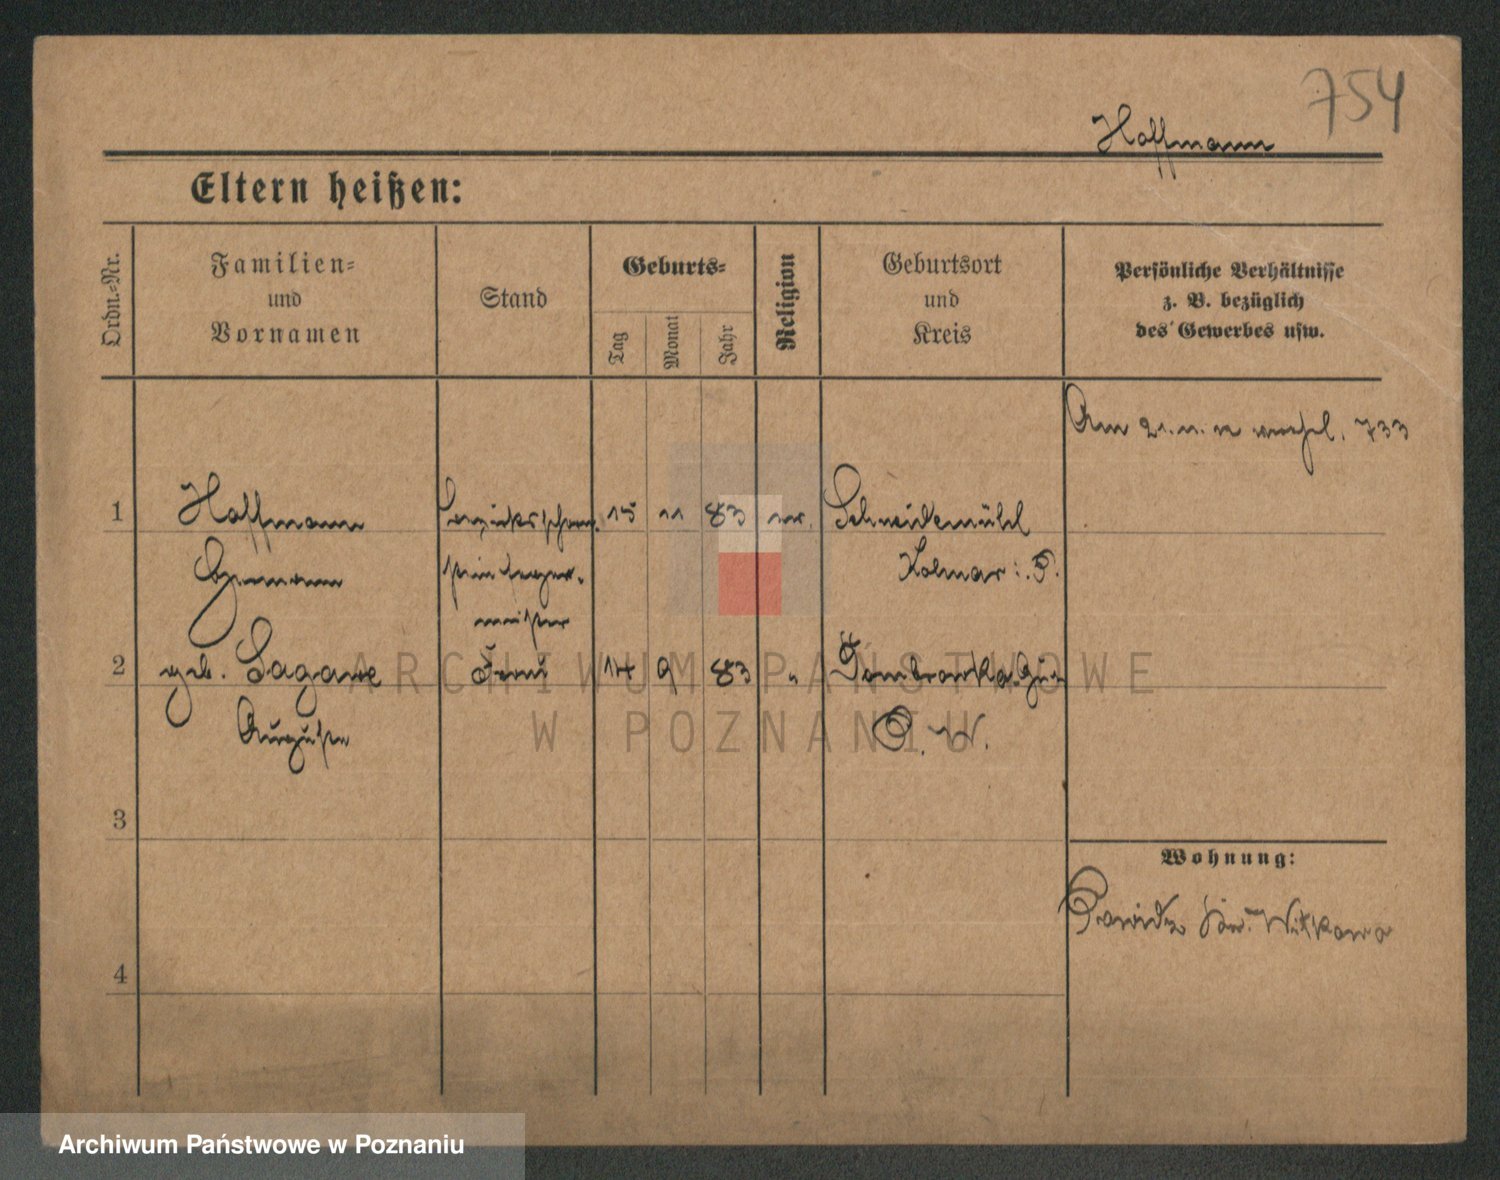 754
Hoffmann
Eltern heißen:
Ordn.-Nr.
Familien-
und
Vornamen
Stand
Geburts-
Tag
Monat
Jahr
Religion
Geburtsort
und
Kreis
Persönliche Verhältnisse
z. B. bezüglich
des Gewerbes usw.
Am 21. 11. 12 733
1 Hoffmann 15 11 83 Schneidemühl
Hermann Kolmar i. P.
meister
2 geb. Sagawe Frau 14 9 83 " Dombrowka
Auguste O. W.
3
Wohnung:
Powidz Kr. Witkowo
4
ARCHIWUM PAŃSTWOWE
W POZNANIU
Archiwum Państwowe w Poznaniu